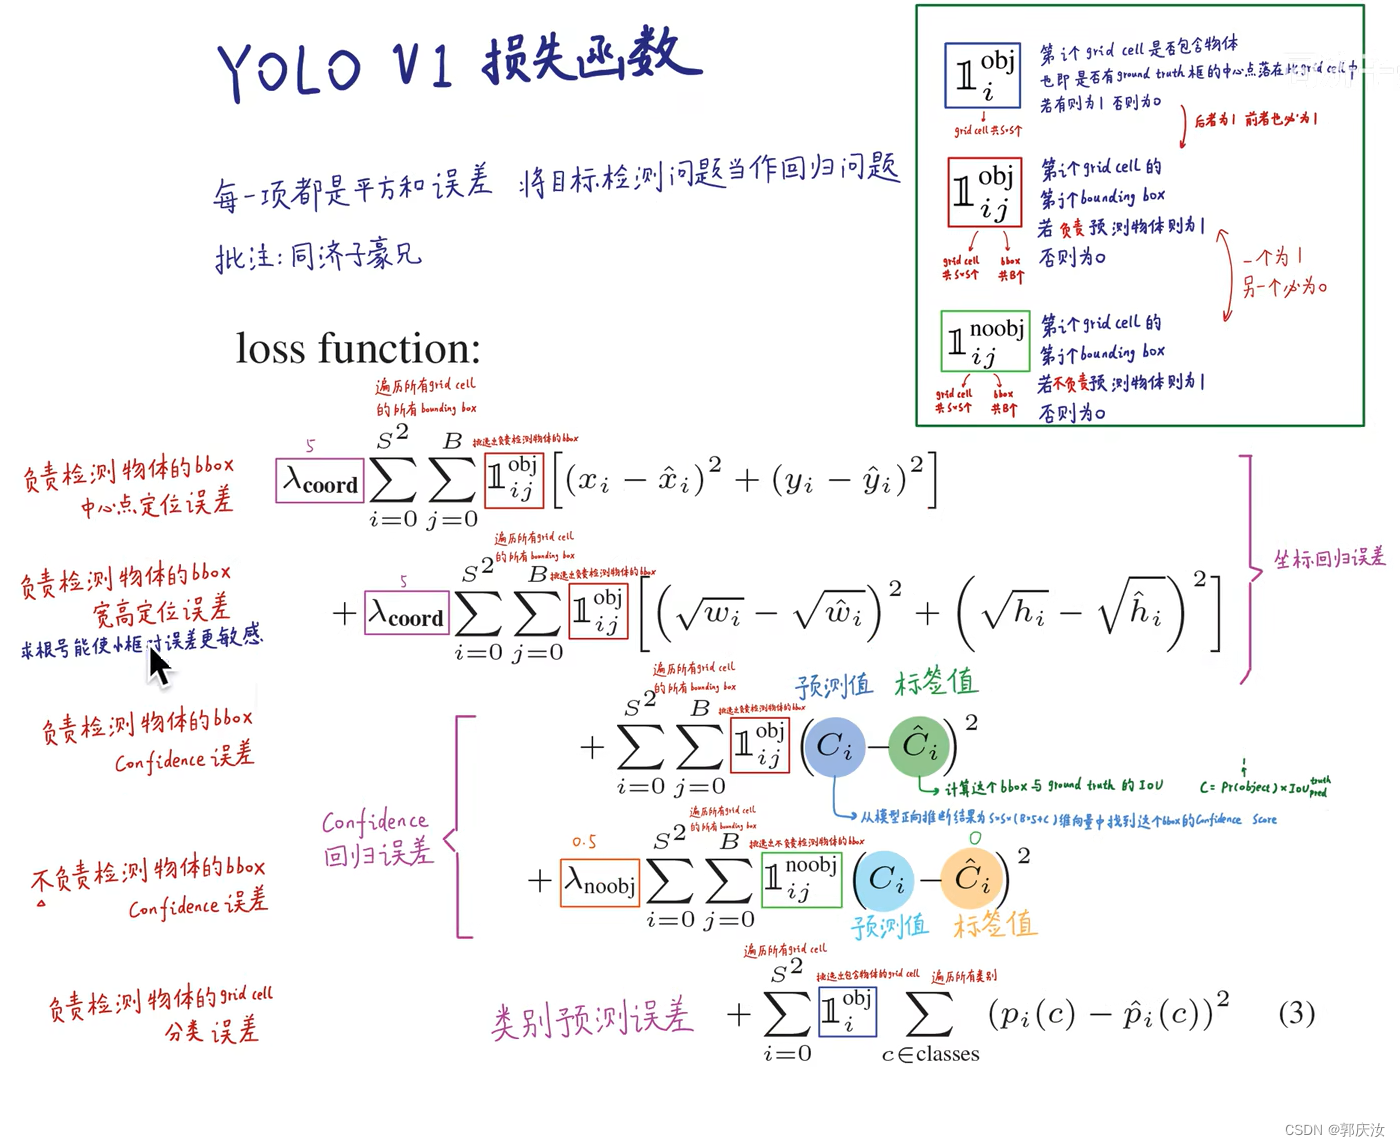 YOLO V1 损失函数
每一项都是平方和误差 将目标检测问题当作回归问题
批注:同济子豪兄
𝟙 obj i
grid cell 共S×S个
第i个grid cell是否包含物体
也即是否有ground truth框的中心点落在此grid cell中
若有则为1 否则为0
后者为1 前者也必为1
𝟙 obj ij
grid cell 共S×S个
bbox 共B个
第i个grid cell的
第j个bounding box
若负责预测物体则为1
否则为0
一个为1
另一个必为0
𝟙 noobj ij
grid cell 共S×S个
bbox 共B个
第i个grid cell的
第j个bounding box
若不负责预测物体则为1
否则为0
loss function:
遍历所有grid cell
的所有bounding box
挑选出负责检测物体的bbox
负责检测物体的bbox
中心点定位误差
5
λcoord ∑_{i=0}^{S^2} ∑_{j=0}^{B} 𝟙_{ij}^{obj} [(x_i − x̂_i)^2 + (y_i − ŷ_i)^2]
坐标回归误差
遍历所有grid cell
的所有bounding box
挑选出负责检测物体的bbox
负责检测物体的bbox
宽高定位误差
求根号能使小框对误差更敏感
5
+ λcoord ∑_{i=0}^{S^2} ∑_{j=0}^{B} 𝟙_{ij}^{obj} [(√w_i − √ŵ_i)^2 + (√h_i − √ĥ_i)^2]
遍历所有grid cell
的所有bounding box
挑选出负责检测物体的bbox
预测值 标签值
负责检测物体的bbox
Confidence 误差
+ ∑_{i=0}^{S^2} ∑_{j=0}^{B} 𝟙_{ij}^{obj} (C_i − Ĉ_i)^2
计算这个bbox与ground truth的IoU
1
C = Pr(object) × IoU^{truth}_{pred}
从模型正向推断结果为S×S×(B×5+C)维向量中找到这个bbox的Confidence Score
Confidence
回归误差
遍历所有grid cell
的所有bounding box
挑选出不负责检测物体的bbox
不负责检测物体的bbox
Confidence 误差
0.5
0
+ λnoobj ∑_{i=0}^{S^2} ∑_{j=0}^{B} 𝟙_{ij}^{noobj} (C_i − Ĉ_i)^2
预测值 标签值
遍历所有grid cell
挑选出包含物体的grid cell
遍历所有类别
负责检测物体的grid cell
分类误差
类别预测误差
+ ∑_{i=0}^{S^2} 𝟙_i^{obj} ∑_{c∈classes} (p_i(c) − p̂_i(c))^2 (3)
CSDN @郭庆汝